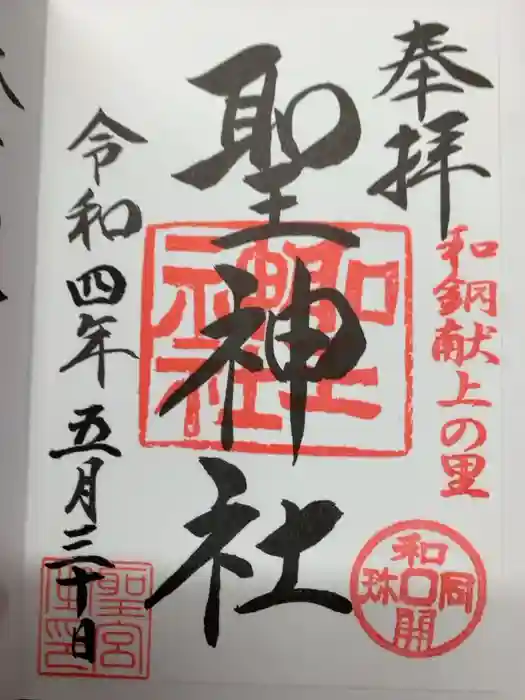 奉拝
和銅献上の里
聖神社
聖神社
和同開珎
令和四年五月三十日
聖宮